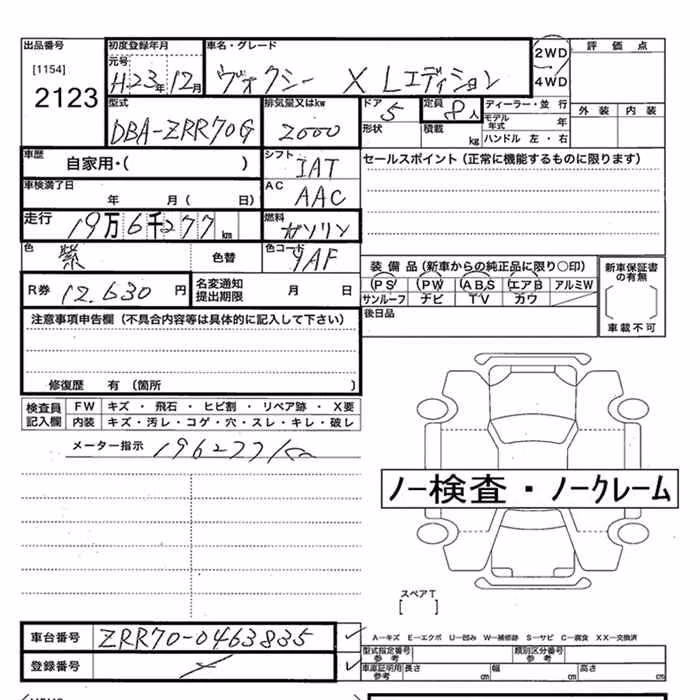 出品番号 初度登録年月 車名・グレード 2WD 評価点
[1154] 元号
2123 H23年12月 ヴォクシー X Lエディション 4WD
型式 排気量又はkw ドア 定員 ディーラー・並行 外装 内装
DBA-ZRR70G 2000 5 8人 モデル年式 年
形状 積載 kg ハンドル 左・右
車歴 自家用・( ) シフト IAT セールスポイント (正常に機能するものに限ります)
車検満了日 年 月 ( 日) AC AAC
走行 19万6千277km 燃料 ガソリン
色 紫 色替 色コード 9AF
装備品 (新車からの純正品に限り○印) 新車保証書の有無
R券 12.630円 名変通知提出期限 月 日
PS PW ABS エアB アルミW
サンルーフ ナビ TV カワ
後日品 車載不可
注意事項申告欄 (不具合内容等は具体的に記入して下さい)
修復歴 有 (箇所 )
検査員記入欄 FW キズ・飛石・ヒビ割・リペア跡・X要
内装 キズ・汚レ・コゲ・穴・スレ・キレ・破レ
メーター指示 196277km
ノー検査・ノークレーム
スペアT
[ ]
車台番号 ZRR70-0463835
A-キズ E-エクボ U-凹み W-補修跡 S-サビ C-腐食 XX-交換済
型式指定番号 参考 類別区分番号 参考
登録番号
車庫証明用 参考 長さ cm 幅 cm 高さ cm